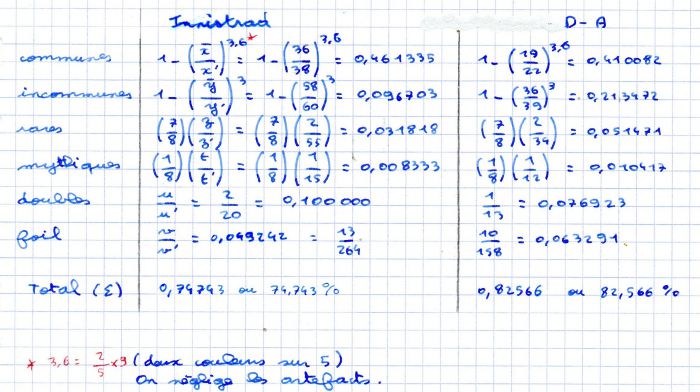 Innistrad D-A
communes 1-(x̄/x')^3,6* = 1-(36/38)^3,6 = 0,461335 1-(19/22)^3,6 = 0,410082
incommunes 1-(ȳ/y')^3 = 1-(58/60)^3 = 0,096703 1-(36/39)^3 = 0,213472
rares (7/8)(z/z') = (7/8)(2/55) = 0,031818 (7/8)(2/34) = 0,051471
mythiques (1/8)(t/t') = (1/8)(1/15) = 0,008333 (1/8)(1/12) = 0,010417
doubles u/u' = 2/20 = 0,100000 1/13 = 0,076923
foil v/v' = 0,049242 = 13/264 10/158 = 0,063291
Total (Σ) 0,74743 ou 74,743 % 0,82566 ou 82,566 %
* 3,6 = 2/5 x 9 (deux couleurs sur 5)
On néglige les artefacts.